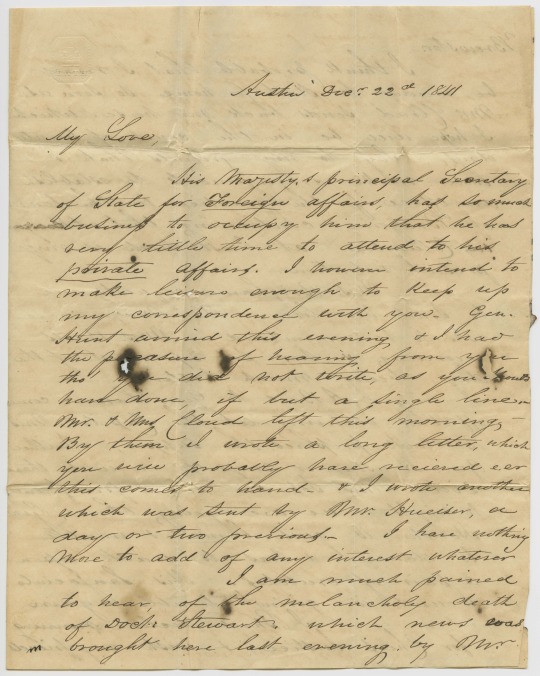 Austin Decr 22d 1841
My Love
His Majesty,s principal Secretary
of State for Foreign affairs, has so much
business to occupy him that he has
very little time to attend to his
private affairs. I however intend to
make leisure enough to keep up
my correspondence with you. Gen.
Hunt arrived this evening, & I had
the pleasure of hearing from you
tho you did not write, as you
have done if but a single line.
Mr. & Mrs Cloud left this morning,
By them I wrote a long letter, which
you will probably have recieved eer
this comes to hand. & I wrote another
which was sent by Mr. a
day or two previous. I have nothing
more to add of any interest whatever
I am much pained
to hear, of the melancholy death
of Doct. Stewart. which news was
brought here last evening. by Mr.